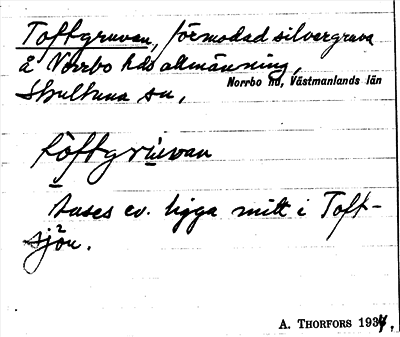 Toftgruvan, förmodad silvergruva
å Norrbo hds allmänning,
Norrbo hd, Västmanlands län
Skultuna sn,
tòftgrùvan
anses ev. ligga mitt i Toft-
sjön.
A. THORFORS 1934.